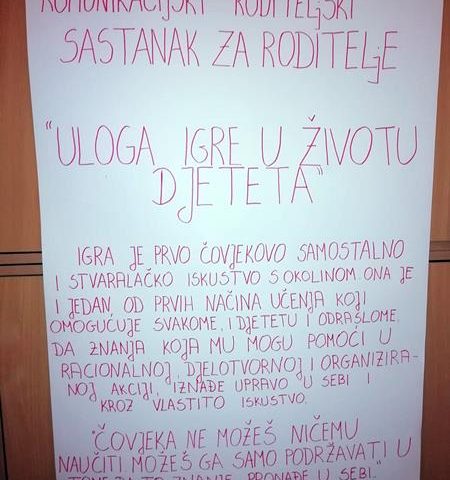 KOMUNIKACIJSKI RODITELJSKI
SASTANAK ZA RODITELJE
"ULOGA IGRE U ŽIVOTU
DJETETA"
IGRA JE PRVO ČOVJEKOVO SAMOSTALNO
I STVARALAČKO ISKUSTVO S OKOLINOM. ONA JE
I JEDAN OD PRVIH NAČINA UČENJA KOJI
OMOGUĆUJE SVAKOME, I DJETETU I ODRASLOME,
DA ZNANJA KOJA MU MOGU POMOĆI U
RACIONALNOJ, DJELOTVORNOJ I ORGANIZIRA-
NOJ AKCIJI, IZNAĐE UPRAVO U SEBI I
KROZ VLASTITO ISKUSTVO.
"ČOVJEKA NE MOŽEŠ NIČEMU
NAUČITI MOŽEŠ GA SAMO PODRŽAVATI U
TOME DA TO ZNANJE PRONAĐE U SEBI."